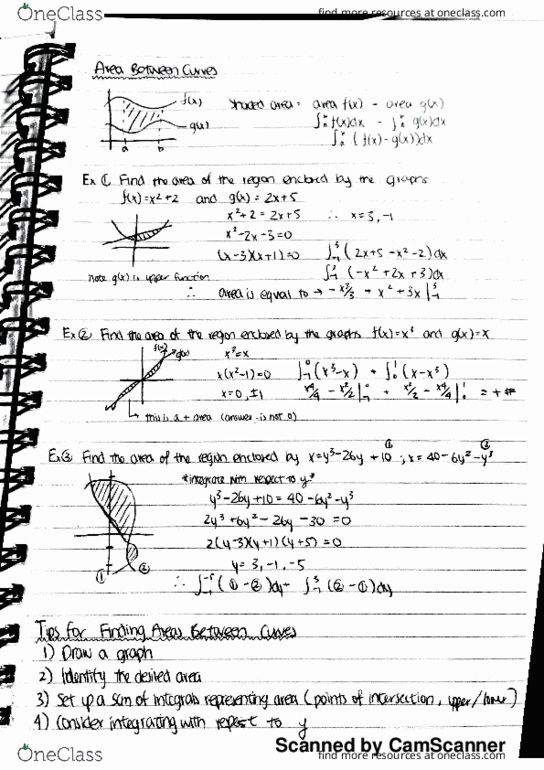 OneClass
find more resources at oneclass.com
Area Between Curves
f(x)
g(x)
a b
shaded area = area f(x) - area g(x)
∫ₐᵇ f(x)dx - ∫ₐᵇ g(x)dx
∫ₐᵇ (f(x)-g(x))dx
Ex ① Find the area of the region enclosed by the graphs
f(x)=x²+2 and g(x)=2x+5
x²+2=2x+5 ∴ x=3,-1
x²-2x-3=0
(x-3)(x+1)=0 ∫₋₁³(2x+5-x²-2)dx
note g(x) is upper function ∫₋₁³(-x²+2x+3)dx
∴ area is equal to → -x³/3 + x² + 3x |₋₁³
Ex ② Find the area of the region enclosed by the graphs f(x)=x³ and g(x)=x
f(x) g(x)
x³=x
x(x²-1)=0 ∫₋₁⁰(x³-x) + ∫₀¹(x-x³)
x=0,±1 x⁴/4 - x²/2 |₋₁⁰ + x²/2 - x⁴/4 |₀¹ = + #
this is a + area (answer is not 0)
Ex ③ Find the area of the region enclosed by x=y³-26y+10 ①; x=40-6y²-y³ ②
*integrate with respect to y*
y³-26y+10=40-6y²-y³
2y³+6y²-26y-30=0
2(y-3)(y+1)(y+5)=0
① ②
y=3,-1,-5
∴ ∫₋₁⁻⁵(①-②)dy + ∫₋₁³(②-①)dy
Tips for Finding Areas Between Curves
1) Draw a graph
2) Identify the desired area
3) Set up a sum of integrals representing area (points of intersection, upper/lower)
4) Consider integrating with repest to y
Scanned by CamScanner
OneClass
find more resources at oneclass.com